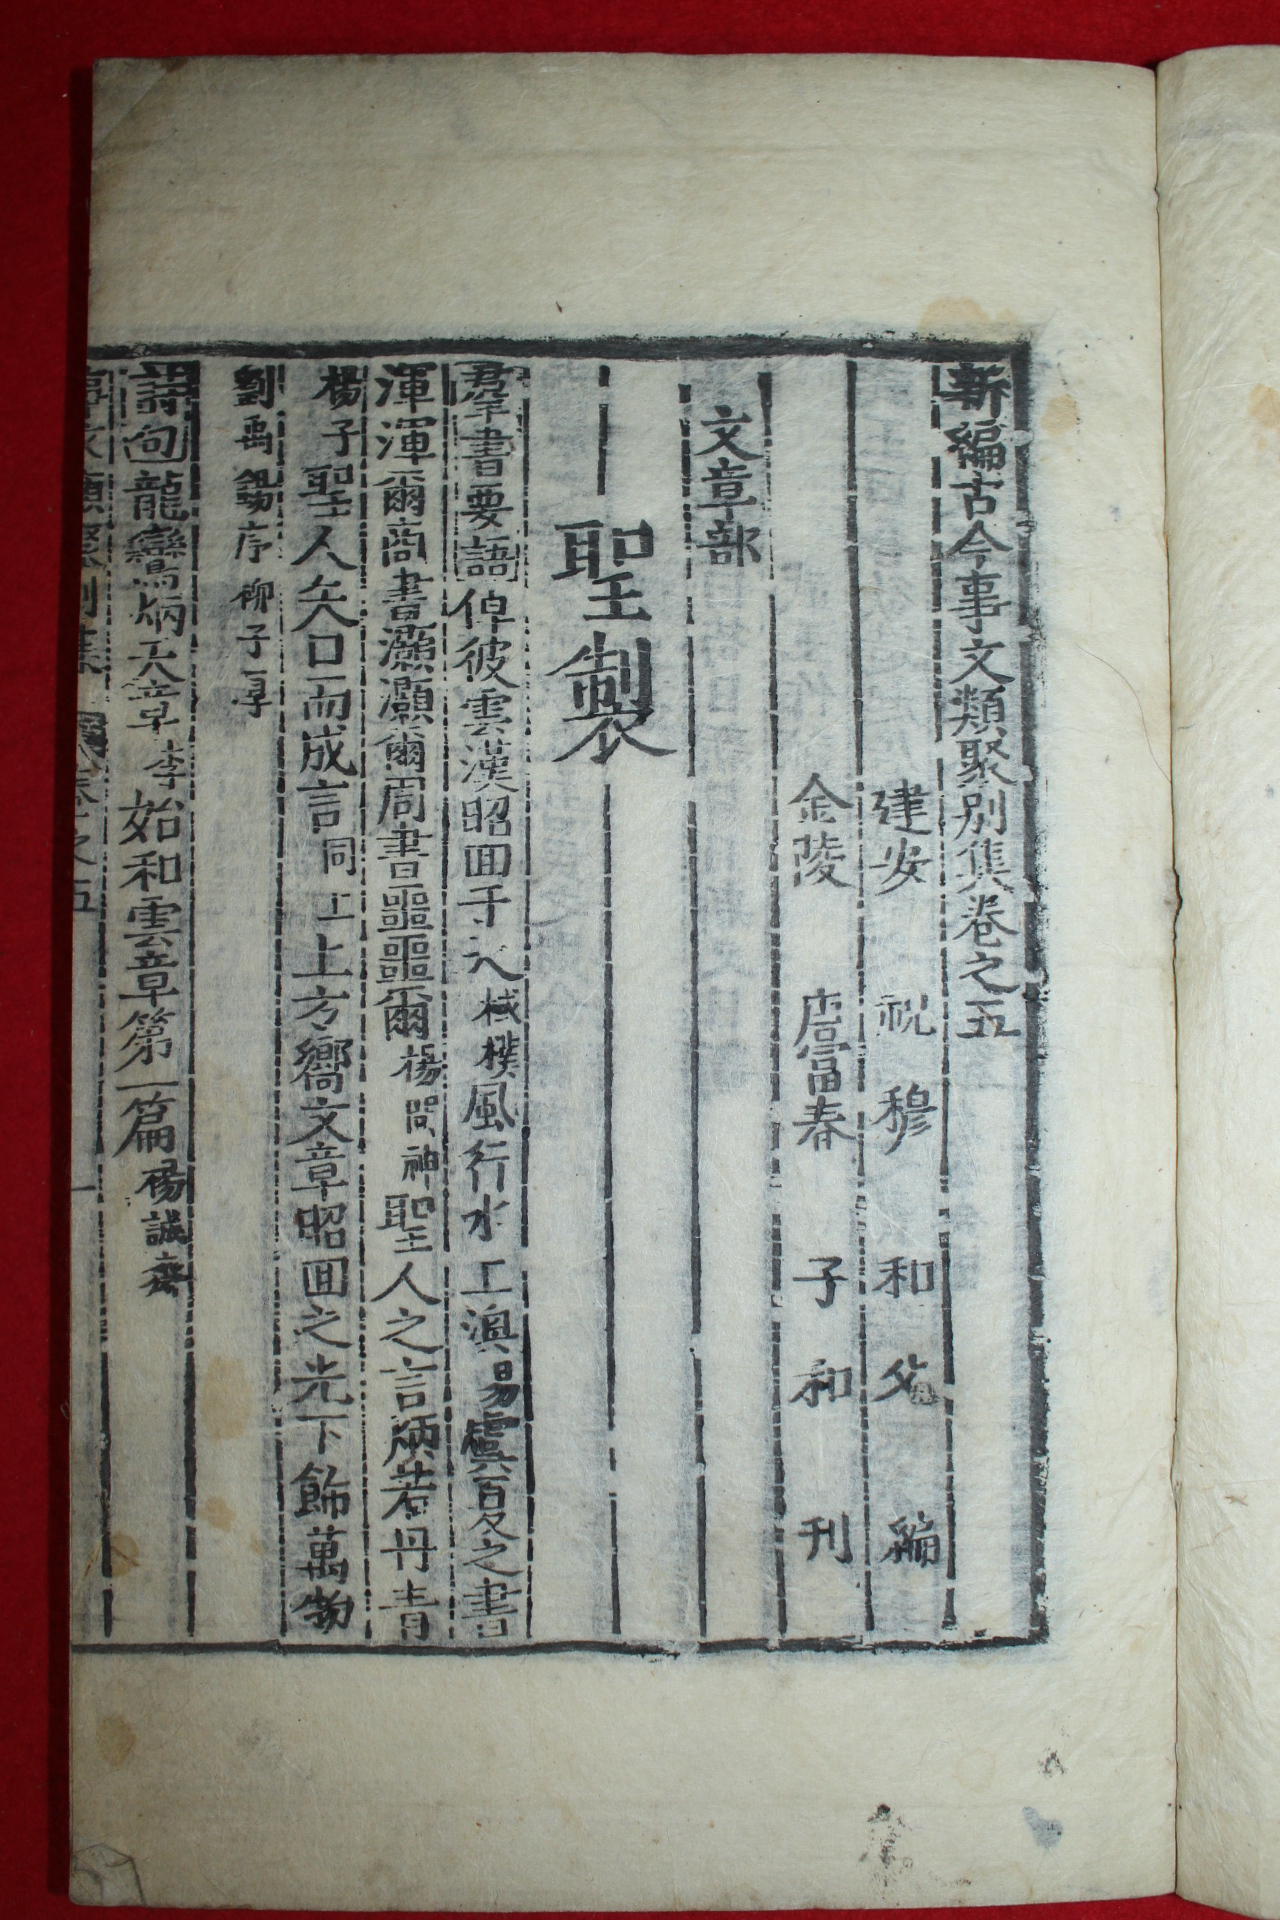 新編古今事文類聚別集卷之五
建安 祝 穆 和 父 編
金陵 唐富春 子 和 刊
文章部
聖製
羣書要語倬彼雲漢昭回于天棫樸風行水上渙易虞夏之書
渾渾爾商書灝灝爾周書噩噩爾楊問神聖人之言炳若丹青
楊子聖人矢口而成言同上上方嚮文章昭回之光下飾萬物
劉禹錫序柳子厚
詩句龍鸞炳天章李始和雲章第一篇楊誠齋
事文類聚別集 卷之五 一